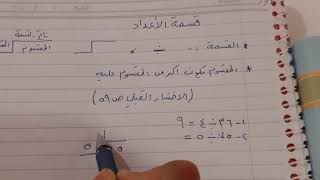 قسمة الأعداد
ناتج القسمة
المقسوم
* القسمة :- ÷ ،
* المقسوم يكون أكبر من المقسوم عليه
(الاختبار القبلي ص ٥٩)
١- ٣٦ ÷ ٤ = ٩
٢- ٧٥ ÷ ٥ =
١
٥
٥